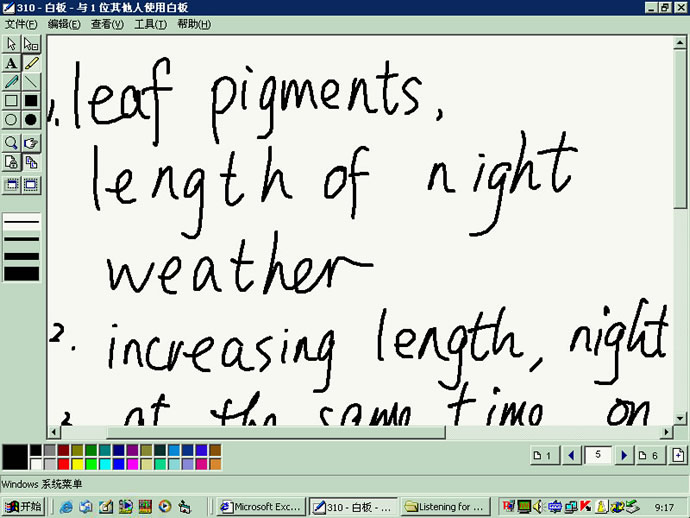 310 - 白板 - 与 1 位其他人使用白板
文件(F) 编辑(E) 查看(V) 工具(T) 帮助(H)
A
1. leaf pigments,
length of night
weather
2. increasing length, night
at the same time on
1 5 6
Windows 系统菜单
开始 Microsoft Exc... 310 - 白板 - ... Listening for ... 9:17